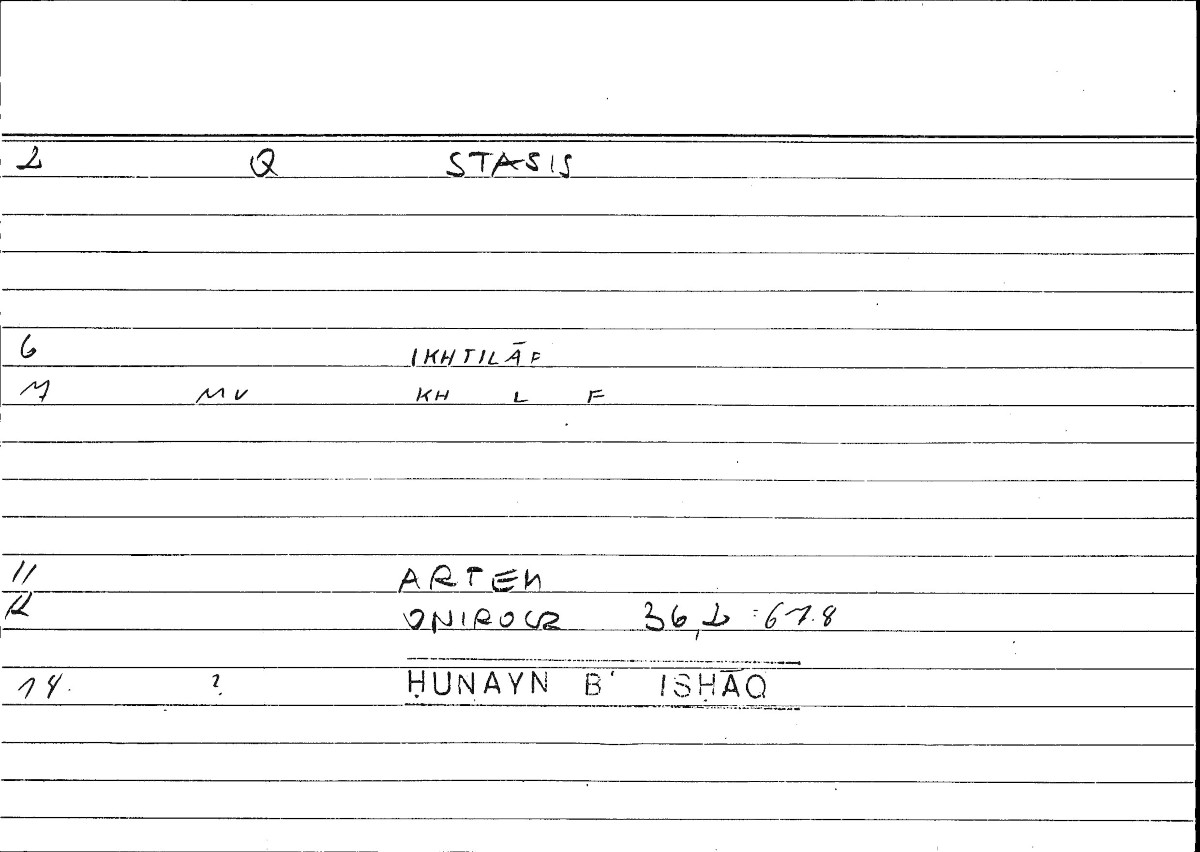 2 Q STASIS
6 IKHTILĀF
7 MV KH L F
11 ARTEM
12 ONIROCR 36,2 : 67.8
14. ? ḤUNAYN B' ISḤĀQ